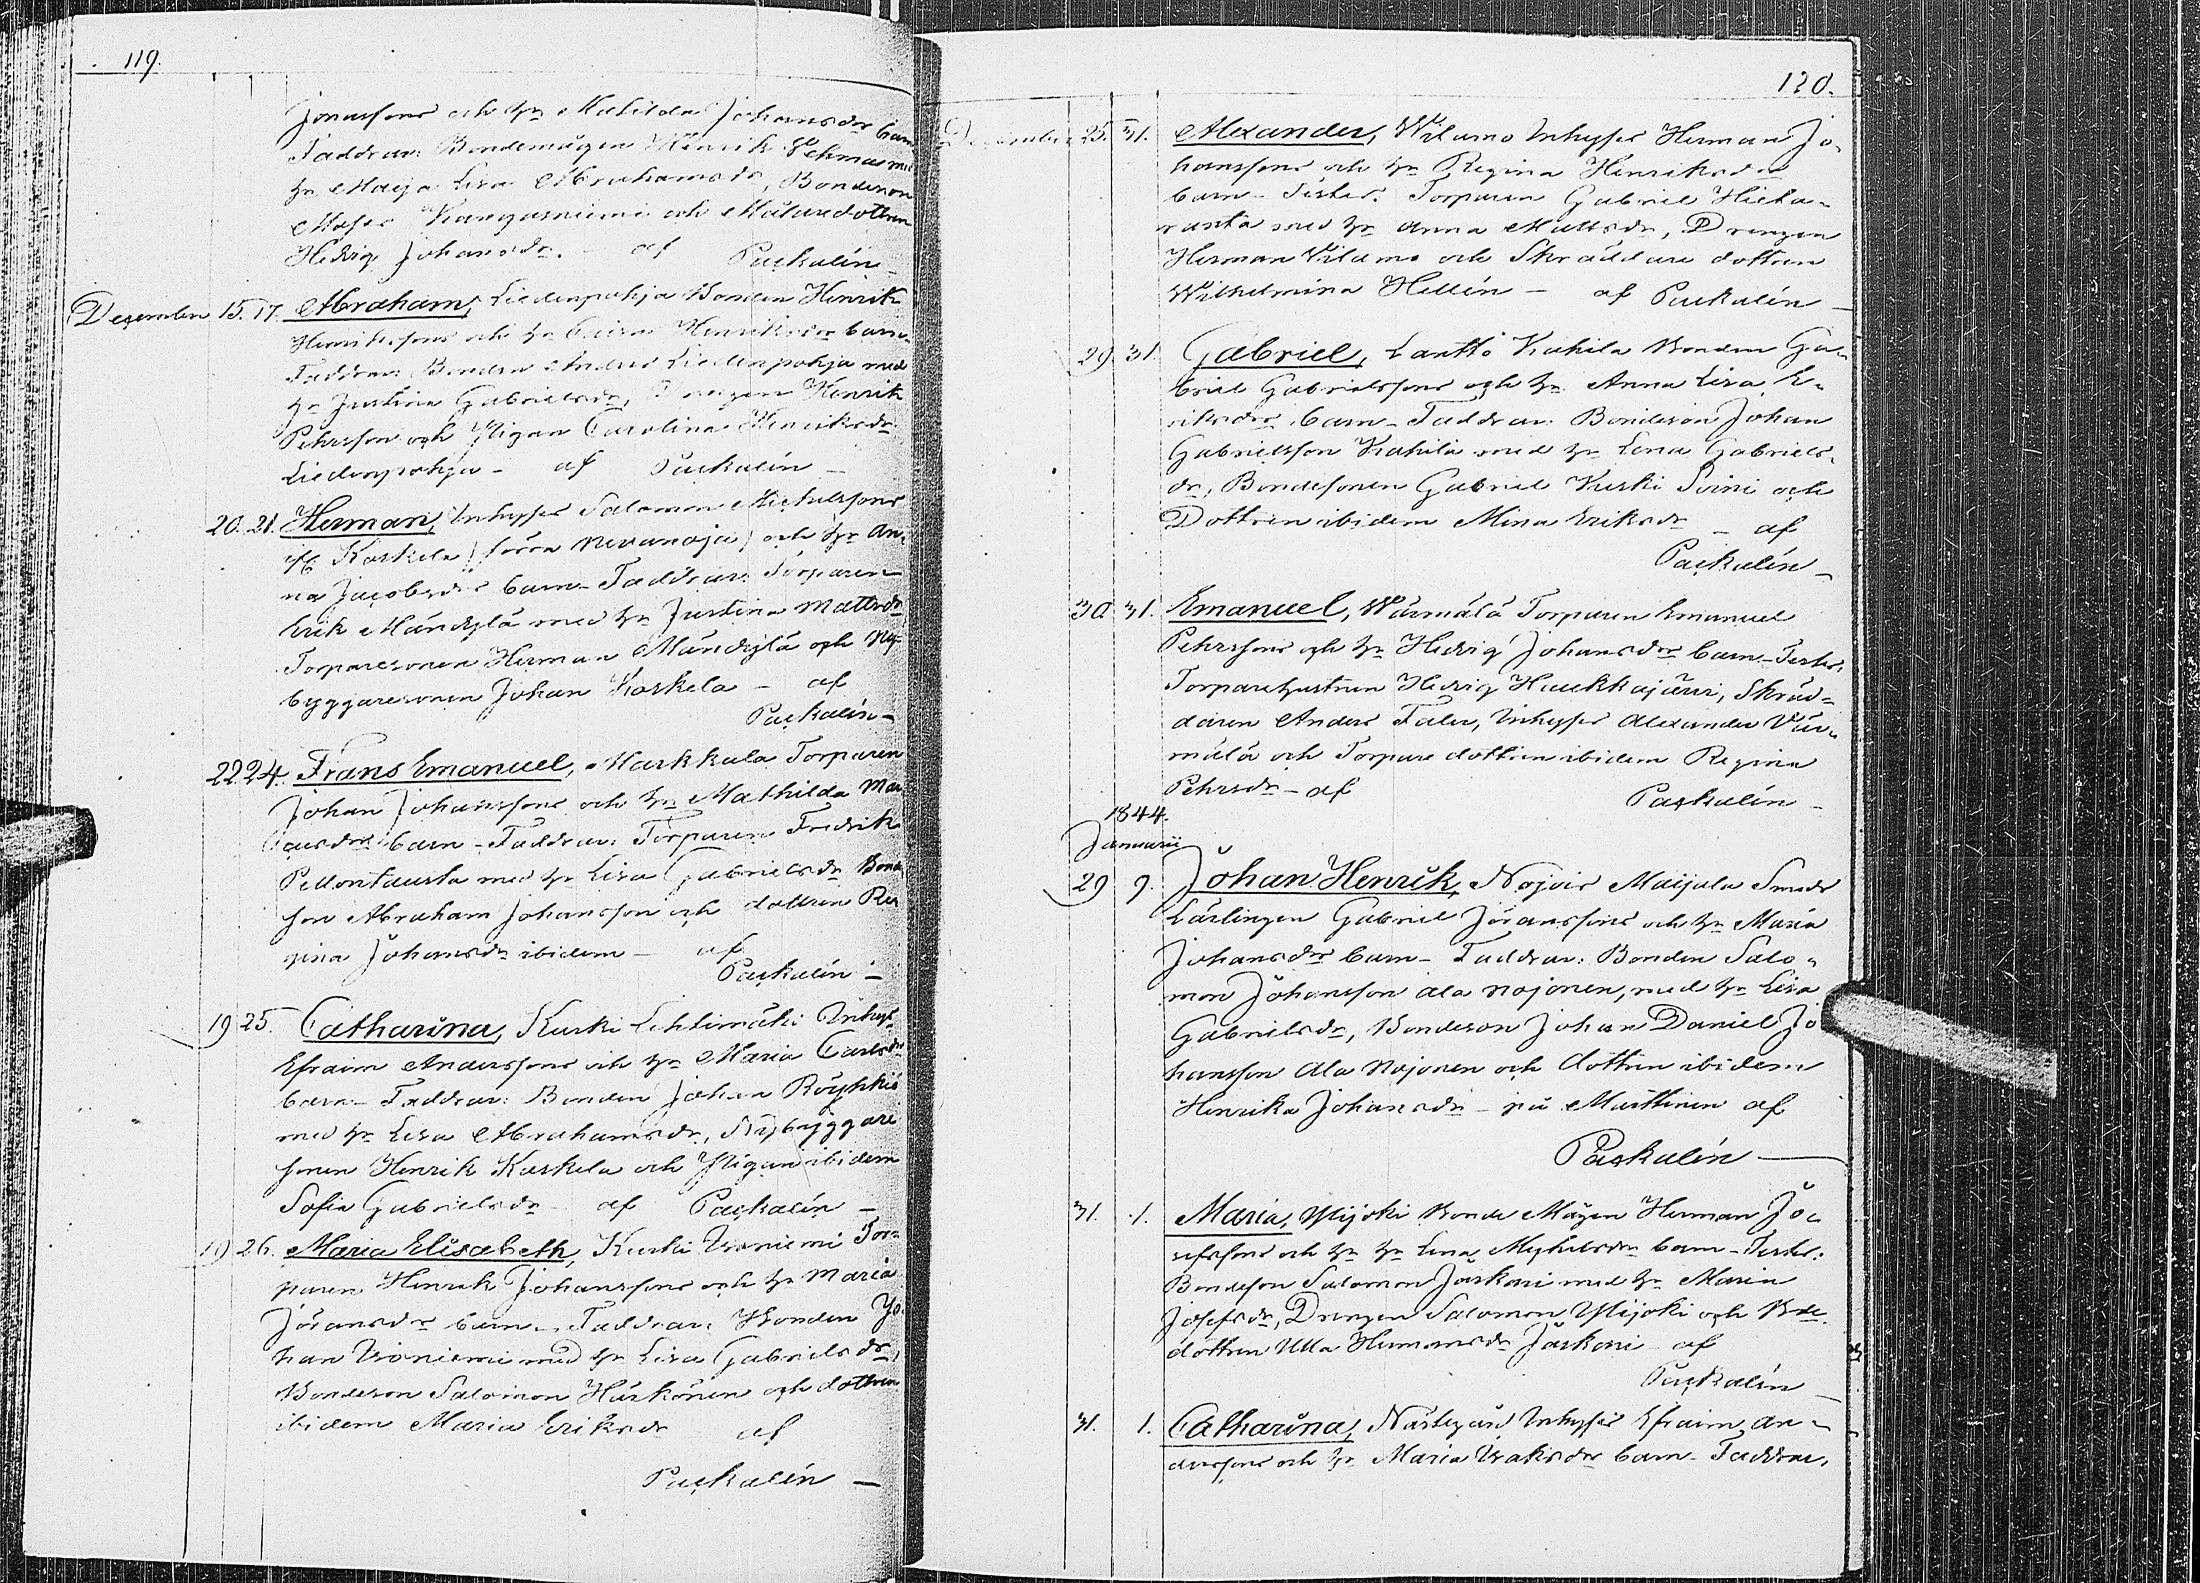 119.
Jöranssons och h:u Mathilda Johansdr barn
Faddrar: Bondemågen Henrik Vehmas med
h:u Maija Lisa Abrahamsdr, Bondeson
Kangasniemi och dottren
Hedvig Johansdr. – af Paçkalén –
Dezember 15. 17. Abraham, Liedenpohja Bonden Henrik
Henrikssons och h:u Caisa Henriksdr barn.
Faddrar: Bonden Anders Liedenpohja med
h:u Justina Gabrielsdr, Drengen Henrik
Pehrsson och Pigan Carolina Henriksdr
Liedenpohja – af Paçkalén –
20. 21. Herman, Inhyses Salomon Michelssons
Koskela (förra Nevanoja) och h:u An-
na Jacobsdrs barn – Faddrar: Torparen
Erik Mändylä med h:u Justina Mattsdr
Torparesonen Herman Mändylä och Ny-
byggaresonen Johan Koskela – af
Paçkalén –
22 24. Frans Emanuel, Markkula Torparen
Johan Johanssons och h:u Mathilda Mar-
cusdrs barn – Faddrar: Torparen Fredrik
Pellontausta med h:u Lisa Gabrielsdr Bonde
son Abraham Johansson och dottren Re
gina Johansdr ibidem – af
Paçkalén –
19 25. Catharina, Kurki Lehtimäki Inhys.
Efraim Anderssons och h:u Maria Carlsdrs
barn – Faddrar: Bonden Johan Röyhkiö
med h:u Lisa Abrahamsdr, Nybyggare
sonen Henrik Koskela och Pigan ibidem
Sofia Gabrielsdr af Paçkalén –
19 26. Maria Elisabeth, Kurki Uroniemi Tor-
paren Henrik Johanssons och h:u Maria
Jöransdrs barn – Faddrar: Bonden Jo
han Uroniemi med h:u Lisa Gabrielsdr,
Bondeson Salomon Härkönen och dottren
ibidem Maria Eriksdr af
Paçkalén –
120.
Dezember 25. 31. Alexander, Wilamo Inhyses Herman Jo-
hanssons och h:u Regina Henriksdrs
barn – Testes: Torparen Gabriel Hieta-
ranta med h:u Anna Mattsdr, Drengen
Herman Vilamo och Skräddare dottren
Wilhelmina Hellén – af Paçkalén –
29. 31. Gabriel, Lanttö Kahila Bonden Ga-
briel Gabrielssons och h:u Anna Lisa E-
riksdrs barn – Faddrar: Bondeson Johan
Gabrielsson Kahila med h:u Lena Gabriels-
dr, Bondesonen Gabriel Kurki Soini och
Dottren ibidem Mina Eriksdr – af
Paçkalén –
30. 31. Emanuel, Wärmälä Torparen Emanuel
Pehrssons och h:u Hedvig Johansdrs barn – Testes.
Torparehustrun Hedvig Haukkajärvi, Skräd-
daren Anders Faler, Inhyses Alexander Vär-
mälä och Torpare dottren ibidem Regina
Pehrsdr – af Paçkalén –
1844.
Januarii
29 9. Johan Henrik, Nojois Maijala Smeds
Lärlingen Gabriel Jöranssons och h:u Maria
Johansdrs barn – Faddrar: Bonden Salo-
mon Johansson Ala Nojonen, med h:u Lisa
Gabrielsdr, Bondeson Johan Daniel Jo
hansson Ala Nojonen och dottren ibidem
Henrika Johansdr – på Marttinen af
Paçkalén –
31. 1. Maria, Ylijoki Bonde Mågen Herman Jo-
sefssons och h:u h:u Lena Michelsdrs barn – Testes:
Bondeson Salomon Jäskari med h:u Maria
Josefsdr, Drengen Salomon Ylijoki och Bde.
dottren Ulla Hermansdr Jäskari – af
Paçkalén –
31. 1. Catharina, Nartegård Inhyses Efraim An-
derssons och h:u Maria Isaksdrs barn – Faddrar,